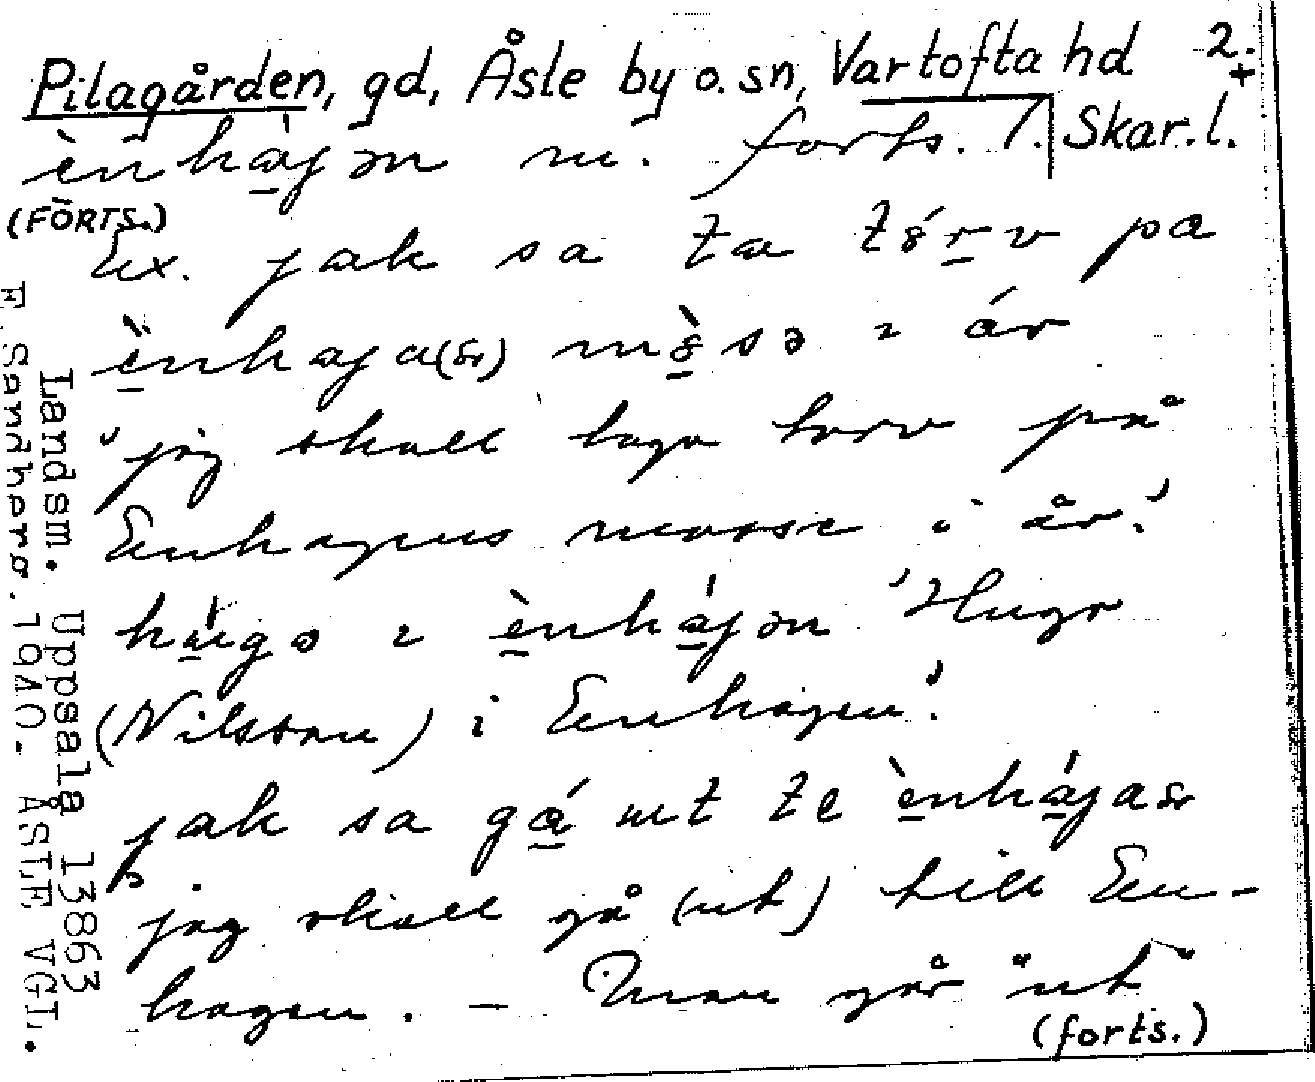 Pilagården, gd, Åsle by o. sn, Vartofta hd 2.
ènhájən m. forts. 1. Skar. l.
(FORTS.)
Ex. jak sa ta tórv pa
ènhaja(s) mòsə ı ár
'jag skall taga torv på
Enhagens mosse i år.'
húgo ı ènhájən 'Hugo
(Nilsson) i Enhagen'.
jak sa gá ut te ènhájas
'jag skall gå (ut) till En-
hagen. - Man går "ut"
(forts.)
Landsm. Uppsala 13863
F. Sandberg. 1940. ÅSLE VGL.